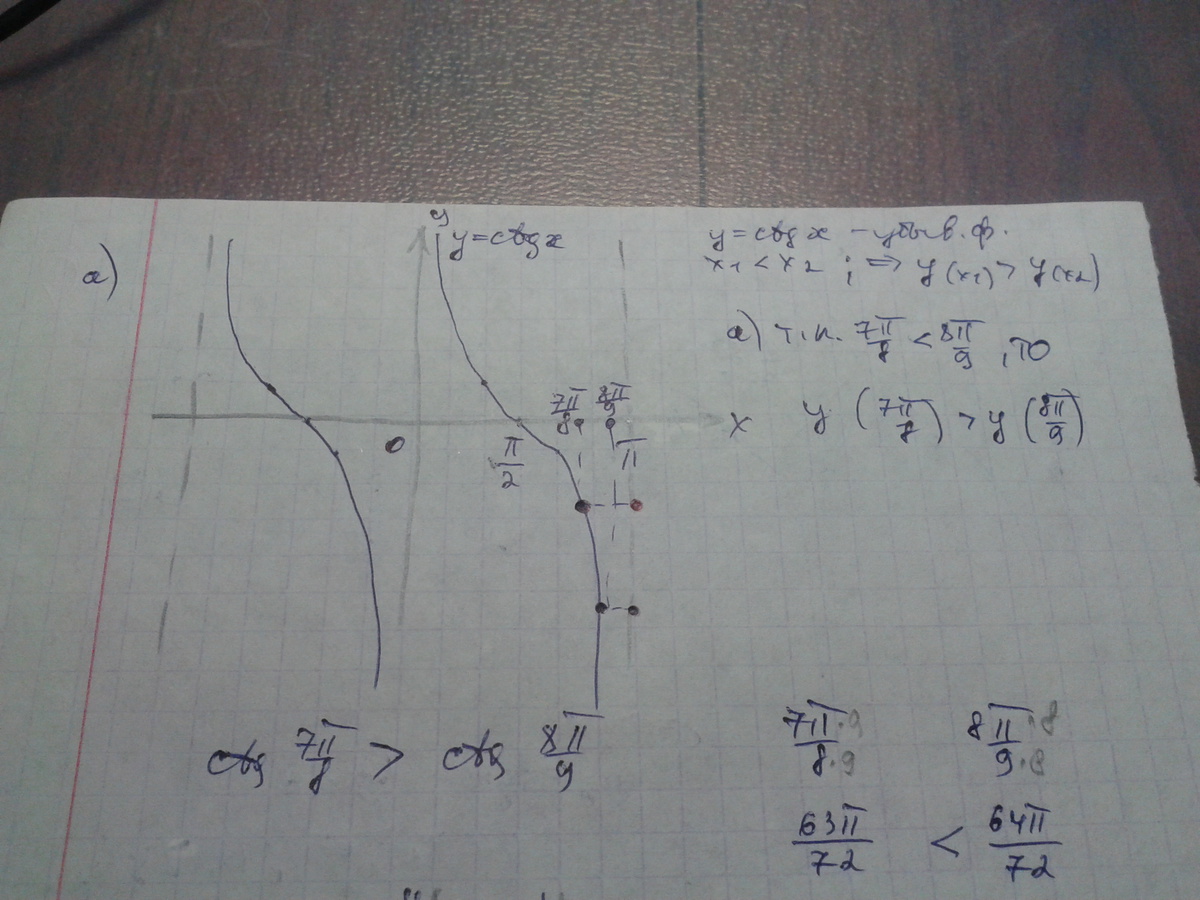 а)
y
y = ctg x
7π/8
8π/9
0
π/2
π
x
y = ctg x – убыв. ф.
x₁ < x₂ ; ⇒ y(x₁) > y(x₂)
а) т.к. 7π/8 < 8π/9 , то
y (7π/8) > y (8π/9)
ctg 7π/8 > ctg 8π/9
7π·9/8·9 8π·8/9·8
63π/72 < 64π/72